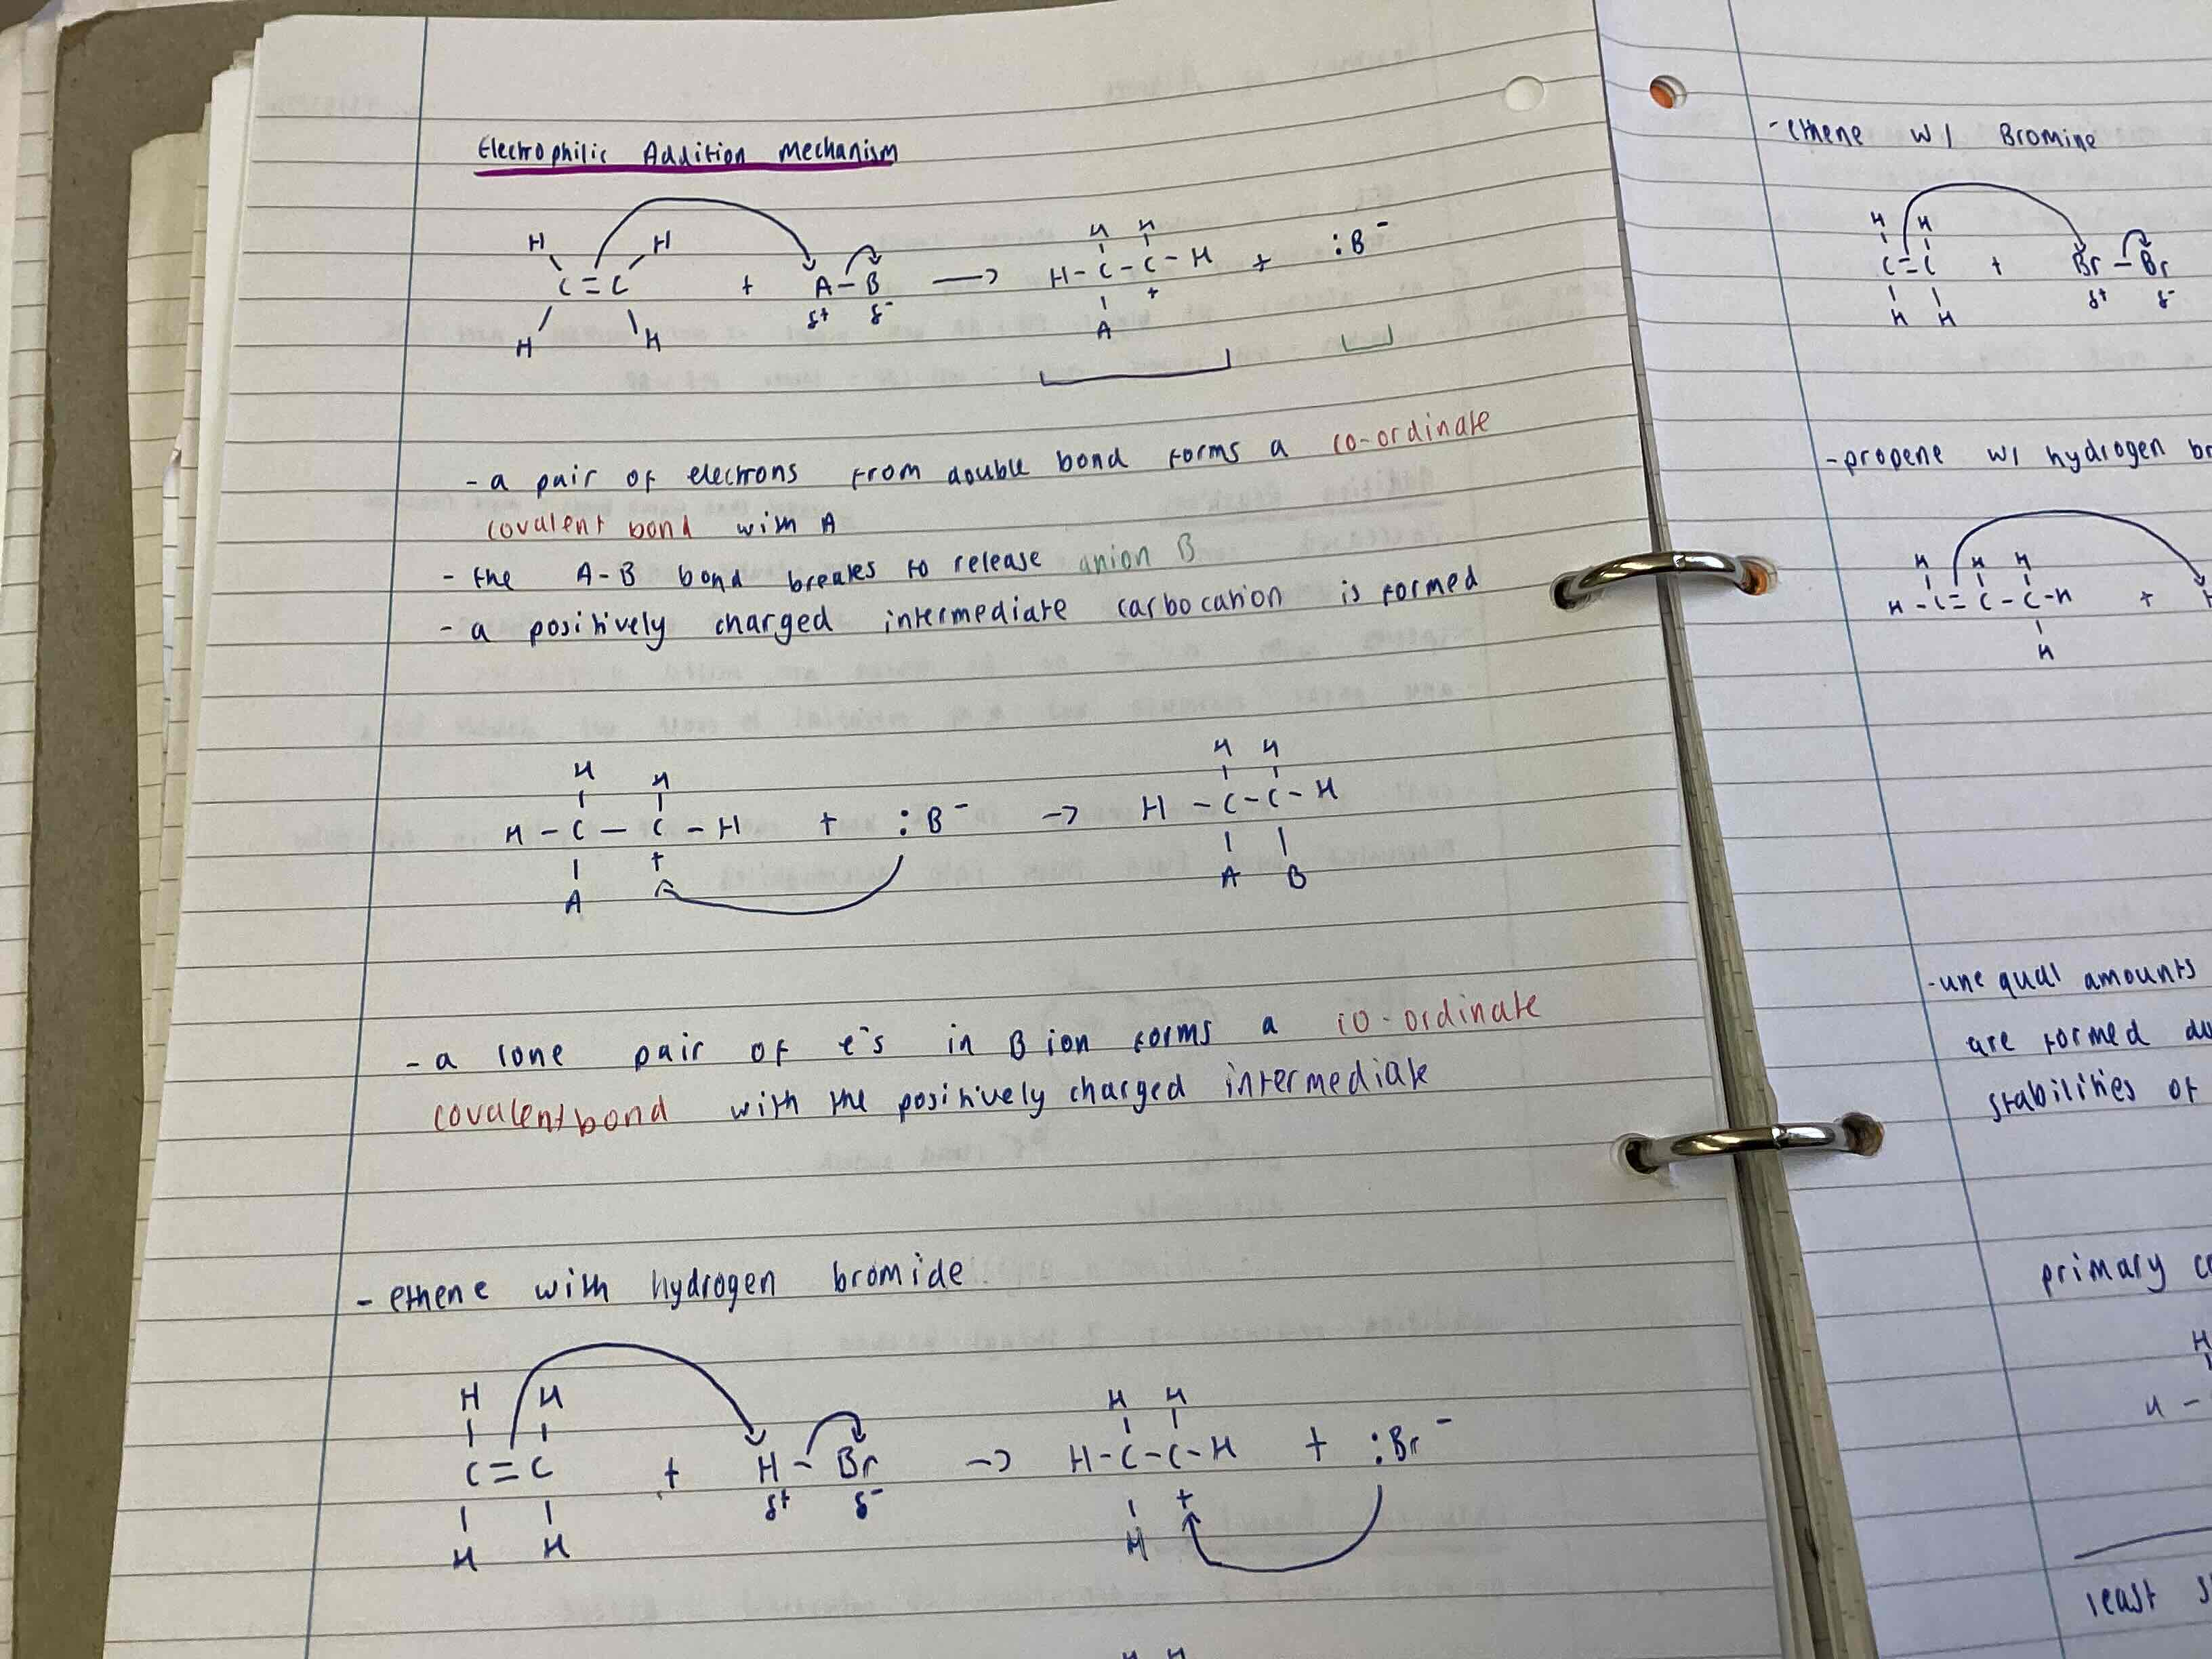 Electrophilic Addition Mechanism
H H H H
C = C + A - B → H - C - C - H + :B⁻
δ+ δ- +
H H A
- a pair of electrons from double bond forms a co-ordinate
covalent bond with A
- the A-B bond breaks to release anion B
- a positively charged intermediate carbocation is formed
H H H H
H - C - C - H + :B⁻ → H - C - C - H
+
A A B
- a lone pair of e⁻s in B ion forms a co-ordinate
covalent bond with the positively charged intermediate
- ethene with hydrogen bromide
H H H H
C = C + H - Br → H - C - C - H + :Br⁻
δ+ δ- +
H H H
H H
- ethene w/ Bromine
H H
C = C + Br - Br
δ+ δ-
H H
- propene w/ hydrogen br
H H H
H - C = C - C - H + H
H
- unequal amounts
are formed du
stabilities of
primary c
H
H -
least s